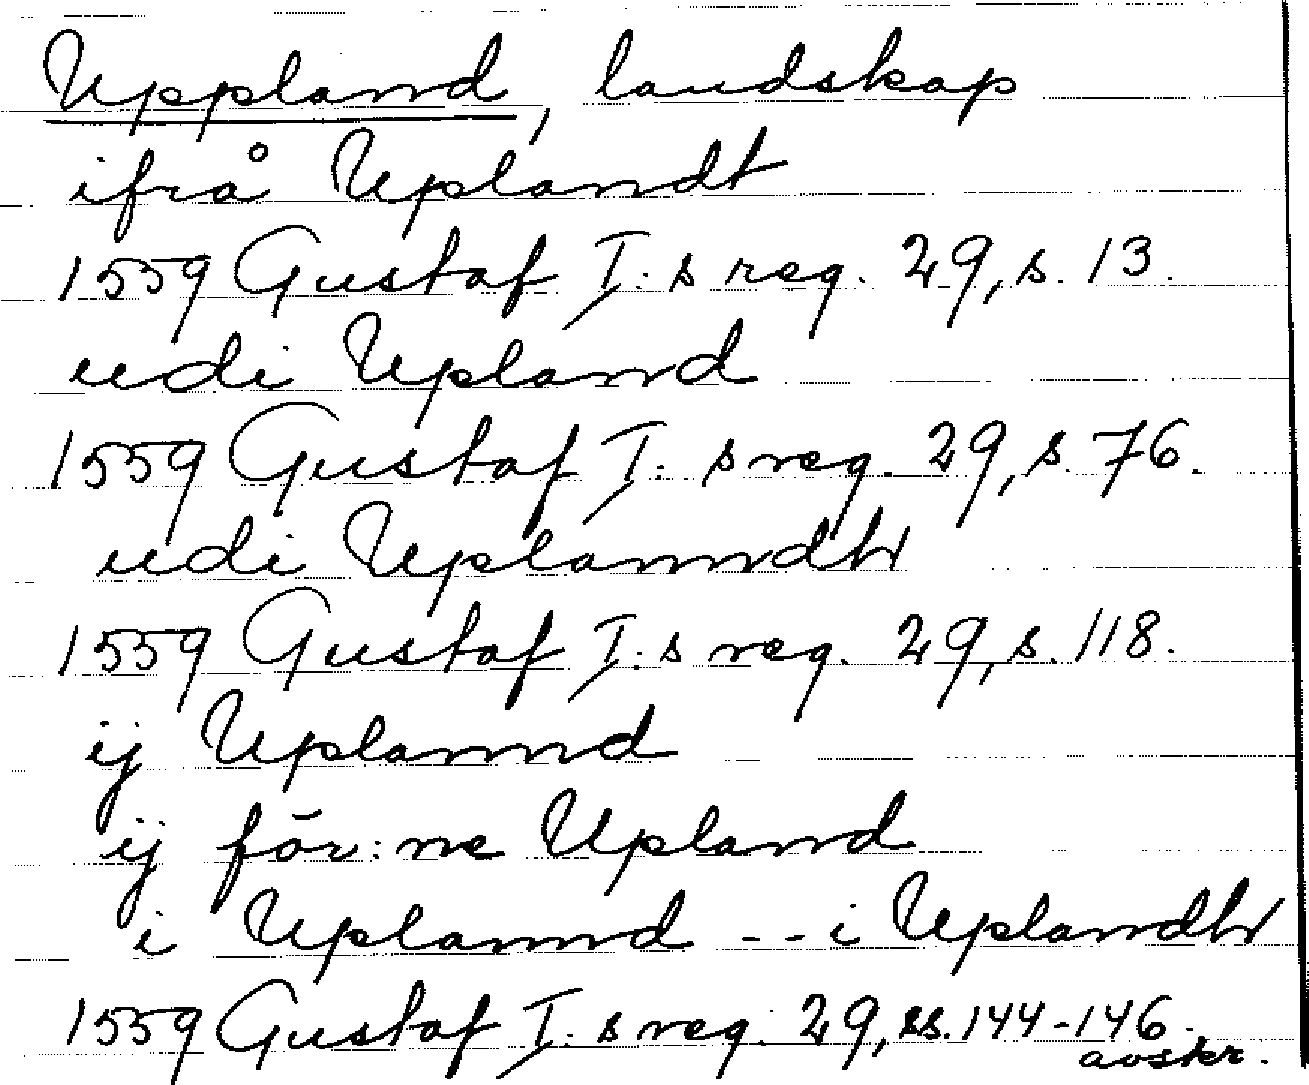 Uppland, landskap
ifrå Uplandt
1559 Gustaf I:s reg. 29, s. 13.
udi Upland
1559 Gustaf I:s reg. 29, s. 76.
udi Uplanndh
1559 Gustaf I:s reg. 29, s. 118.
ij Uplannd
ij för:ne Upland
i Uplannd -- i Uplandh
1559 Gustaf I:s reg. 29, ss. 144-146.
avskr.